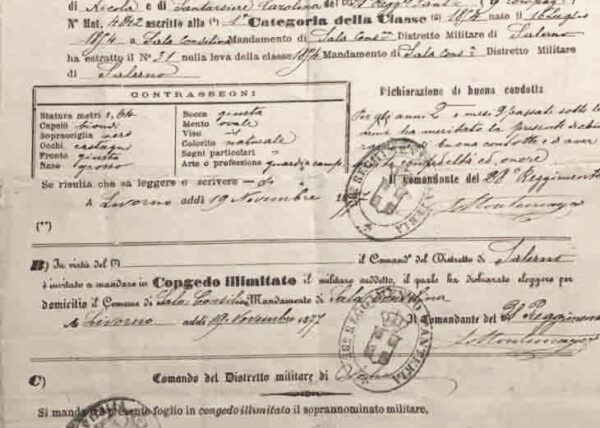 di Nicola e Santarsiere Carolina del
N° Mat. 4842 ascritto alla 1ª Categoria della Classe 1854 nato il 16 Luglio
1854 a Sala Consilina Mandamento di Sala Cons.na Distretto Militare di Salerno
ha estratto il N° 31 nella leva della classe 1854 Mandamento di Sala Cons.na Distretto Militare
di Salerno
CONTRASSEGNI
Statura metri 1,64
Capelli biondi
Sopracciglia nere
Occhi castagni
Fronte giusta
Naso grosso
Bocca giusta
Mento ovale
Viso id
Colorito naturale
Segni particolari /
Arte o professione guardia camp.
Dichiarazione di buona condotta
Per gli anni 2 e mesi 9 passati sotto le
ha meritato la presente di
buona condotta e d'aver
con fedeltà ed onore
Se risulta che sa leggere o scrivere
Il Comandante del 28° Reggimento
A Livorno addì 19 Novembre 187
(**)
B) In virtù del (*) il Comand° del Distretto di Salerno
è invitato a mandare in Congedo illimitato il militare suddetto, il quale ha dichiarato eleggere per
domicilio il Comune di Sala Consilina Mandamento di Sala Consilina
A Livorno addì 19 Novembre 1877 Il Comandante del Reggimento
C) Comando del Distretto militare di
Si manda presente foglio in congedo illimitato il soprannominato militare,